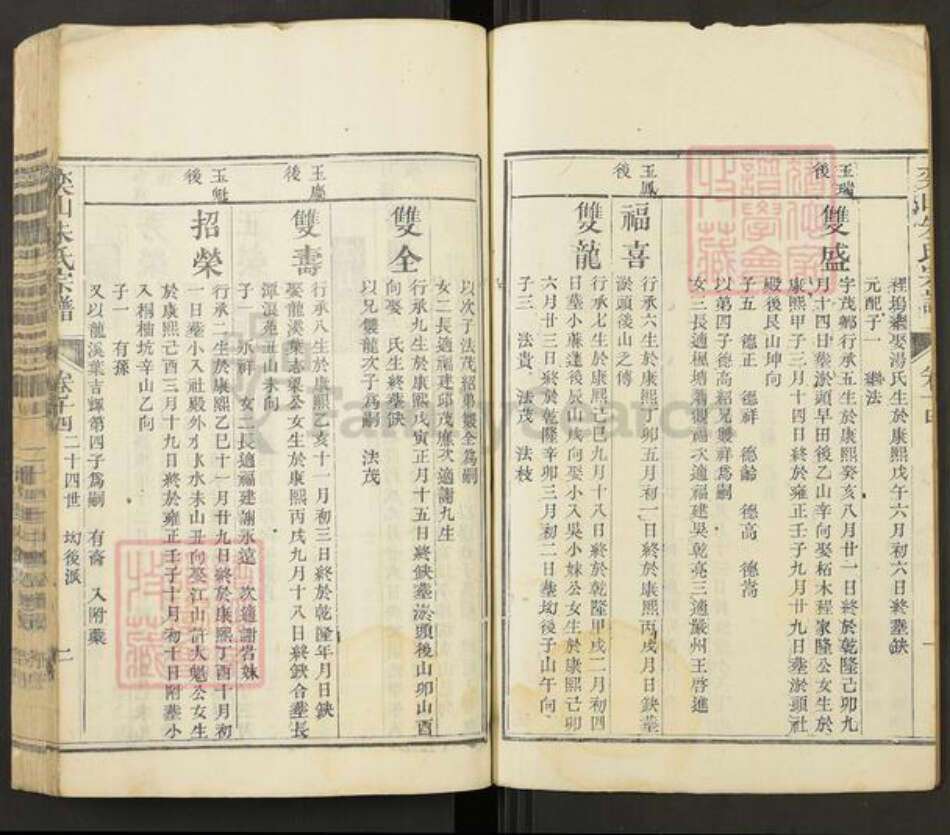 裡塢䅁娶湯氏生於康熙戊午六月初六日終塟鈌
元配子一 繼法
玉瑞後
雙盛
字茂鄉行承五生於康熙癸亥八月廿一日終於乾隆己卯九
月十四日塟淤頭早田後乙山辛向娶柘木程家隆公女生於
康熙甲子三月十四日終於雍正壬子九月廿九日塟淤頭社
殿後艮山坤向
子五 德正 德祥 德齡 德高 德嵩
以第四子德高紹兄雙祥爲嗣
女三長適楓塘 觀福次適福建吳乾亮三適嚴州王啓進
玉鳳後
福喜
行承六生於康熙丁卯五月初一日終於康熙丙戌月日鈌塟
淤頭後山之傍
雙龍
行承七生於康熙己巳九月十八日終於乾隆甲戌二月初四
日塟小蓀蓬後辰山戌向娶小入吳小妹公女生於康熙己卯
六月廿三日終於乾隆辛卯三月初二日塟坳後子山午向
子三 法貴 法茂 法枝
以次子法茂招弟雙全爲嗣
女二長適福建邱茂應次適謝九生
雙全
行承九生於康熙戊寅正月十五日終鈌塟淤頭後山卯山酉
向娶 氏生終塟鈌
以兄雙龍次子爲嗣 法茂
玉慶後
雙壽
行承八生於康熙乙亥十一月初三日終於乾隆年月日鈌
娶龍溪葉志渠公女生於康熙丙戌九月十八日終鈌合塟長
潭浪苑丑山未向
子一 永祥 女二長適福建謝永遠 次適謝岩妹
玉魁後
招榮
行承二生於康熙乙巳十一月廿九日終於康熙丁酉十月初
一日塟小入社殿外水 水未山丑向娶江山許大魁公女生
於康熙己酉三月十九日終於雍正壬子十月初十日附塟小
入桐柚坑辛山乙向
子一 有孫
又以龍溪葉吉輝第四子爲嗣 有喬 入附藂
奕山朱氏宗譜 卷十四 二十四世 坳後派 二